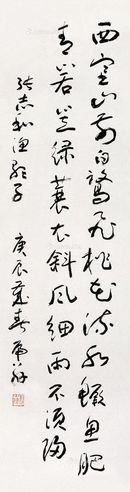 西塞山前白鹭飞桃花流水鳜鱼肥
青箬笠绿蓑衣斜风细雨不须归
张志和渔歌子
庚辰岁春